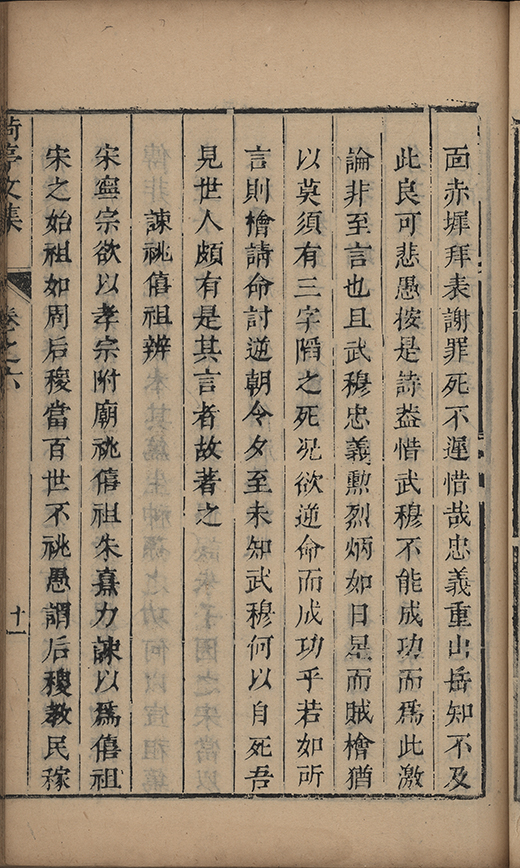 面赤墀拜表謝罪死不遲惜哉忠義重山岳知不及
此良可悲愚按是詩益惜武穆不能成功而爲此激
論非至言也且武穆忠義勲烈炳如日星而賊檜猶
以莫須有三字陷之死况欲逆命而成功乎若如所
言則檜請命討逆朝令夕至未知武穆何以自死吾
見世人頗有是其言者故著之
諫祧僖祖辨
宋寧宗欲以孝宗附廟祧僖祖朱熹力諫以爲僖祖
宋之始祖如周后稷當百世不祧愚謂后稷教民稼
亭文集
卷之六
十一